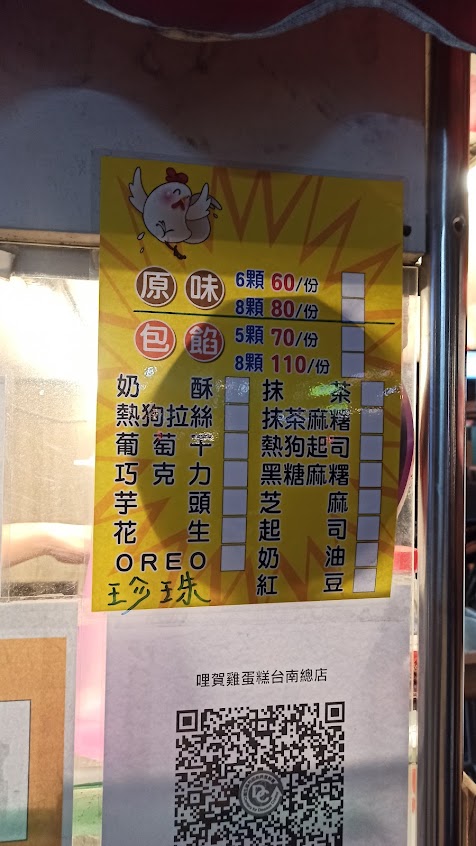 原味 6顆 60/份
8顆 80/份
包餡 5顆 70/份
8顆 110/份
奶酥 抹茶
熱狗拉絲 抹茶麻糬
葡萄干 熱狗起司
巧克力 黑糖麻糬
芋頭 芝麻
花生 起司
OREO 奶油
珍珠 紅豆
哩賀雞蛋糕台南總店